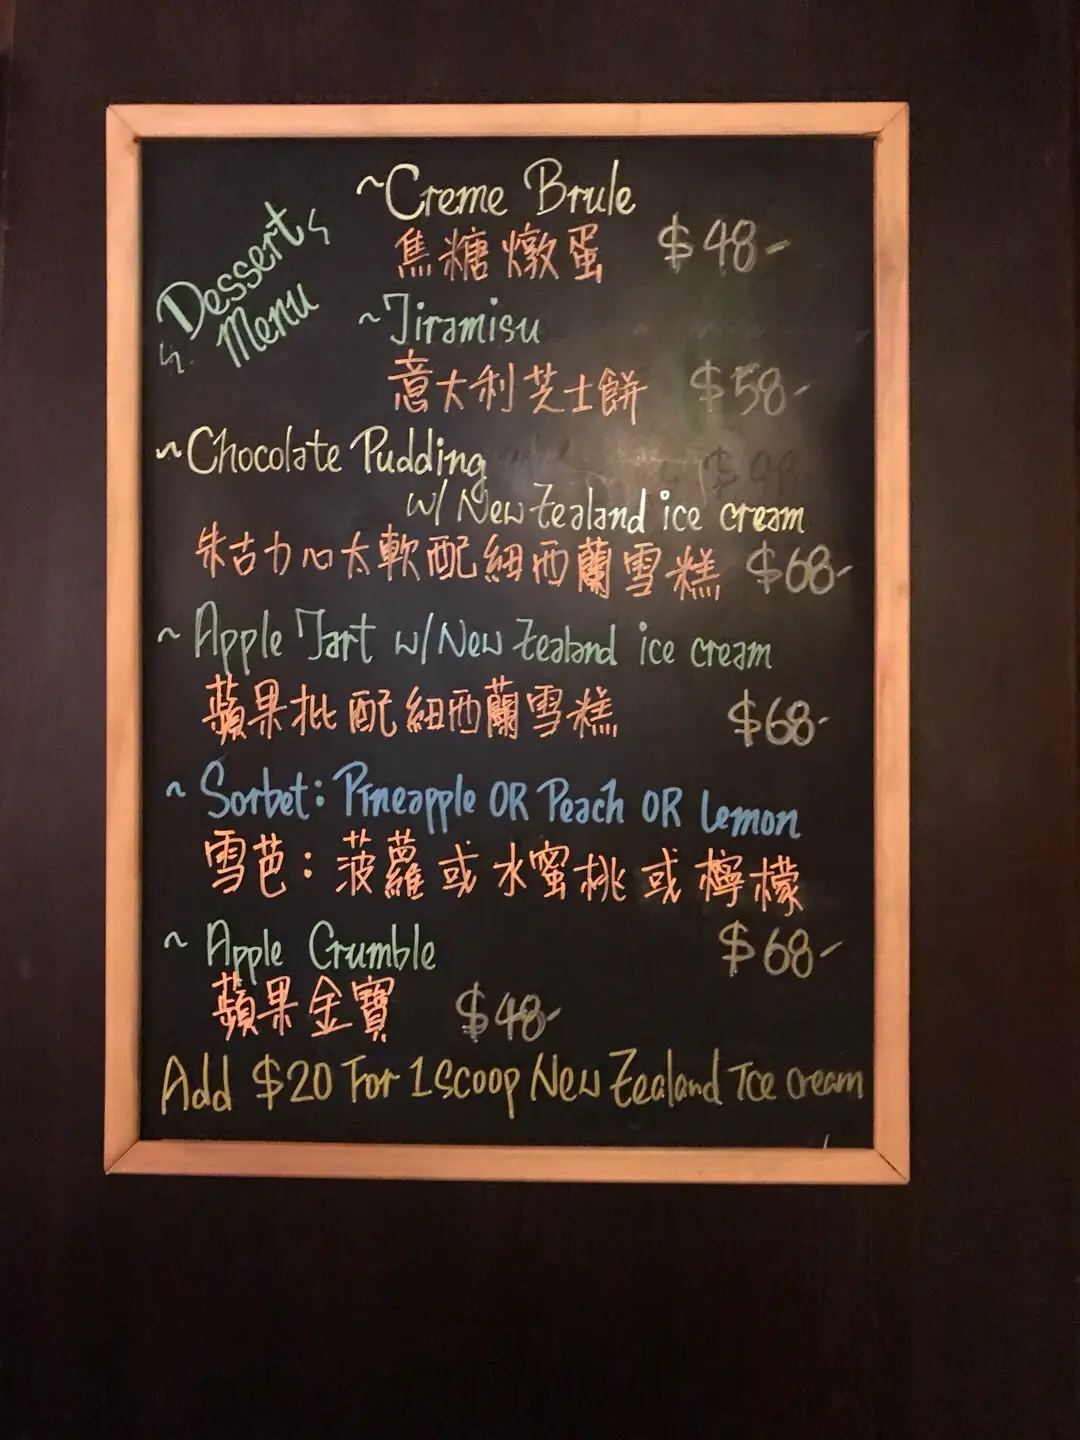 Dessert
Menu
~Creme Brule
焦糖燉蛋 $48-
~Tiramisu
意大利芝士餅 $58-
~Chocolate Pudding
w/ New Zealand ice cream
朱古力心太軟配紐西蘭雪糕 $68-
~ Apple Tart w/ New Zealand ice cream
蘋果批配紐西蘭雪糕 $68-
~ Sorbet: Pineapple OR Peach OR Lemon
雪芭：菠蘿或水蜜桃或檸檬
$68-
~ Apple Crumble
蘋果金寶 $48-
Add $20 For 1 Scoop New Zealand Ice cream